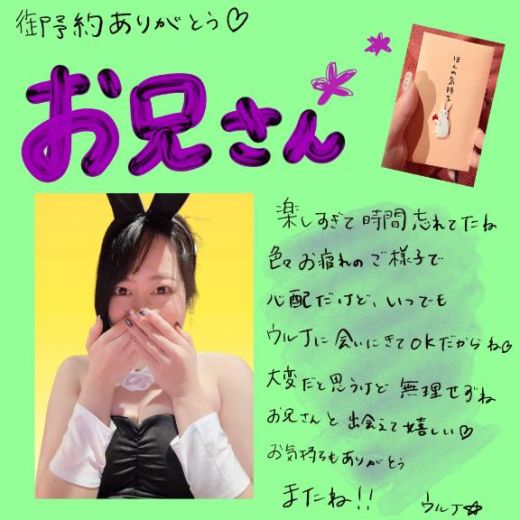 御予約ありがとう♡
お兄さん
ほんの気持ち
楽しすぎて時間忘れてたね
色々お疲れのご様子で
心配だけど、いつでも
ウルTに会いにきてOKだからね♡
大変だと思うけど無理せずね
お兄さんと出会えて嬉しい♡
お気持ちもありがとう
またね!!
ウルT☆